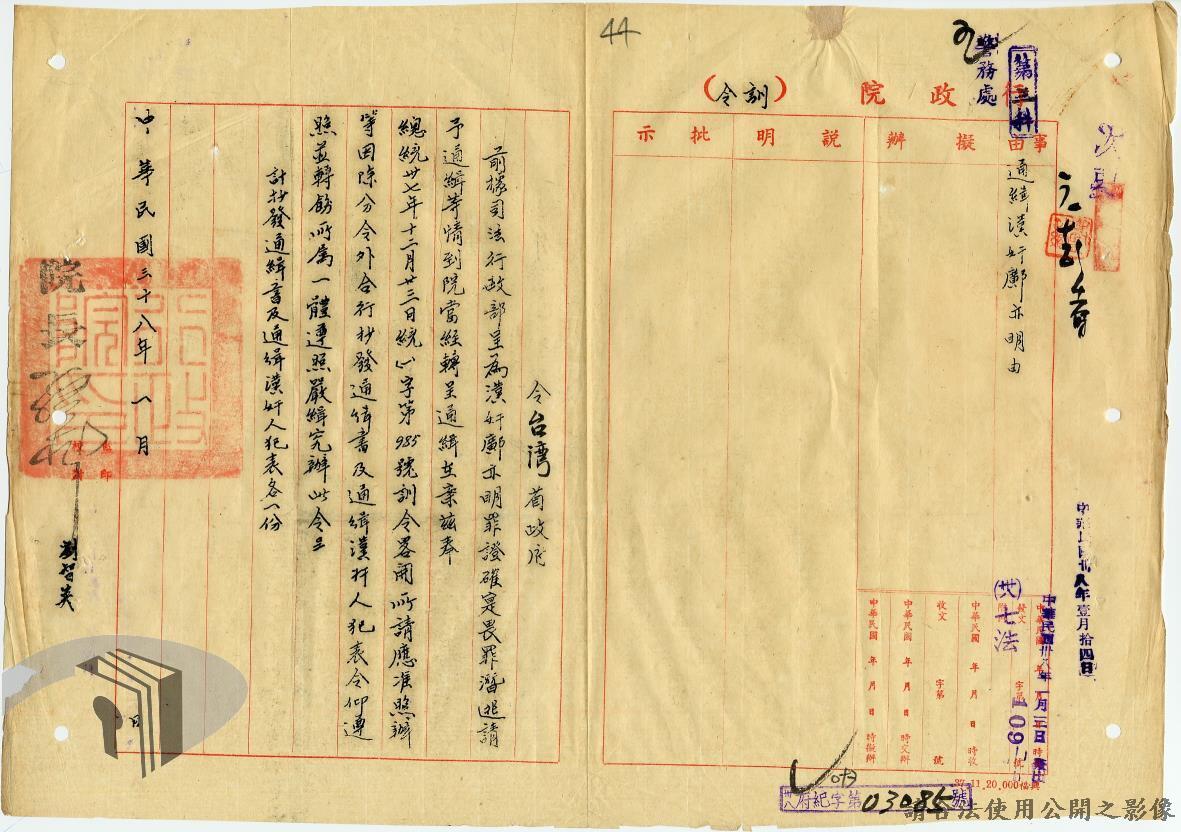 44
行政院（訓令）
警務處
第三科
事由
擬辦
說明
批示
通緝漢奸鄺亦明由
中華民國卅八年壹月拾四日
中華民國卅八年一月
(卅)七法
中華民國 年 月 日 時收
收文 字第 號
中華民國 年 月 日 時交辦
中華民國 年 月 日 時擬辦
37.11.20,000
卅八府紀字第03085號
令台灣省政府
前據司法行政部呈為漢奸鄺亦明罪證確實畏罪潛逃請
予通緝等情到院當經轉呈通緝在案茲奉
總統卅七年十二月廿三日統(一)字第985號訓令畧開所請應准照辦
等因除分令外合行抄發通緝書及通緝漢奸人犯表令仰遵
照並轉飭所屬一體遵照嚴緝究辦此令
計抄發通緝書及通緝漢奸人犯表各一份
中華民國三十八年一月
日
院長
劉智英
請合法使用公開之影像